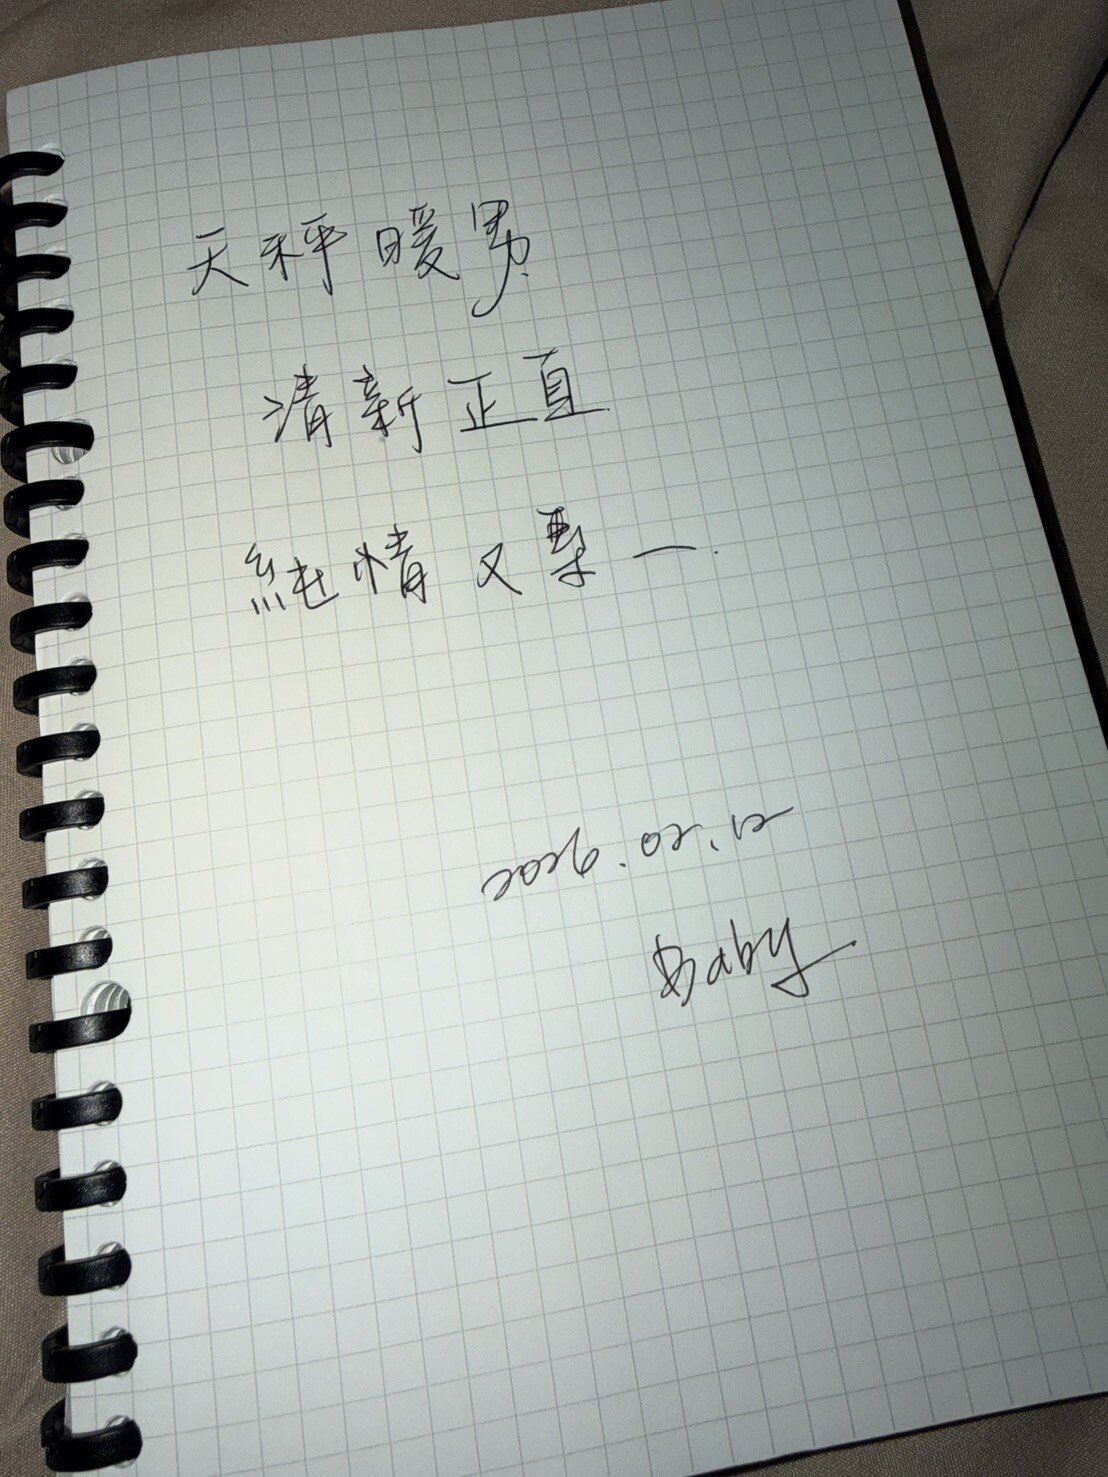 天秤暖男
清新正直
純情又專一.
2026.02.12
Baby